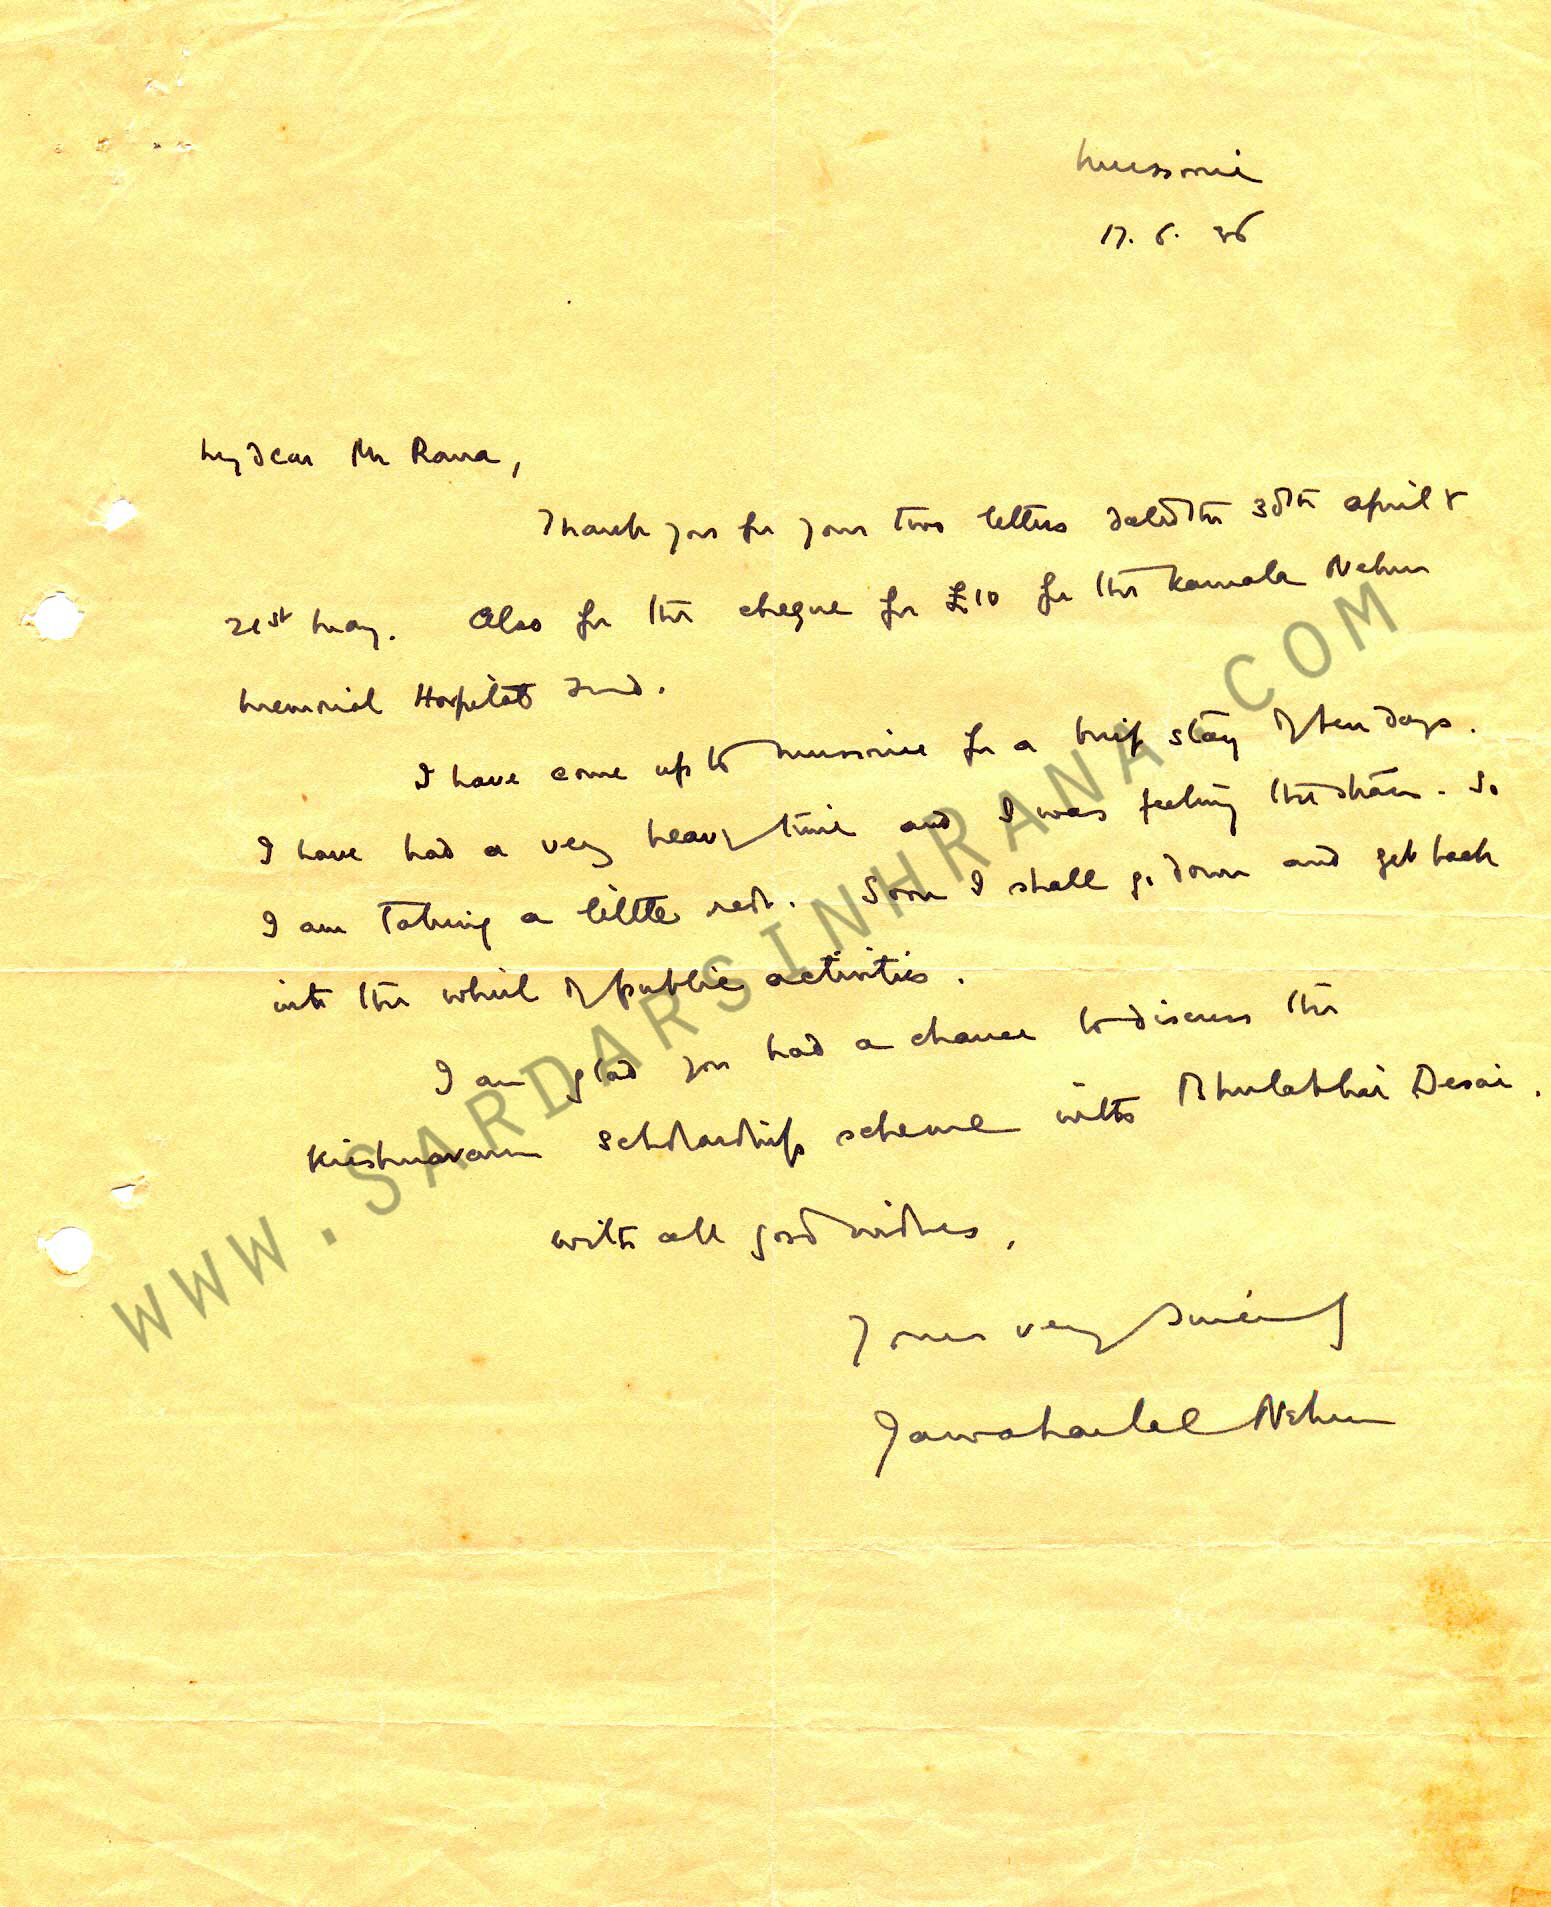 Mussoorie
17. 6. 36
My dear Mr Rana,
Thank you for your two letters dated the 30th April &
21st May. Also for the cheque for £10 for the Kamala Nehru
Memorial Hospital Fund.
I have come up to Mussoorie for a brief stay of ten days.
I have had a very heavy time and I was feeling the strain. So
I am taking a little rest. Soon I shall go down and get back
into the whirl of public activities.
I am glad you had a chance to discuss the
Krishnavarma scholarship scheme with Bhulabhai Desai.
With all good wishes,
Yours very sincerely
Jawaharlal Nehru
WWW.SARDARSINHRANA.COM